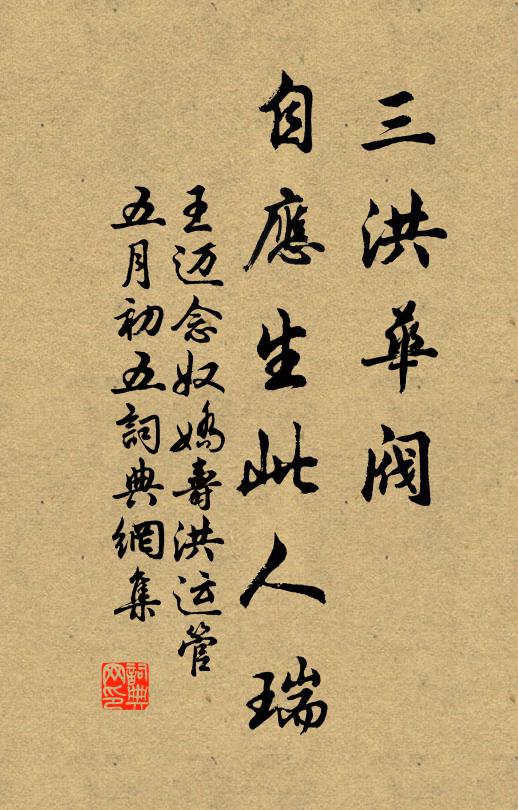 三洪華閥
自應生此人瑞
王迈念奴嬌壽洪运管
五月初五詞典網集
詞典网印